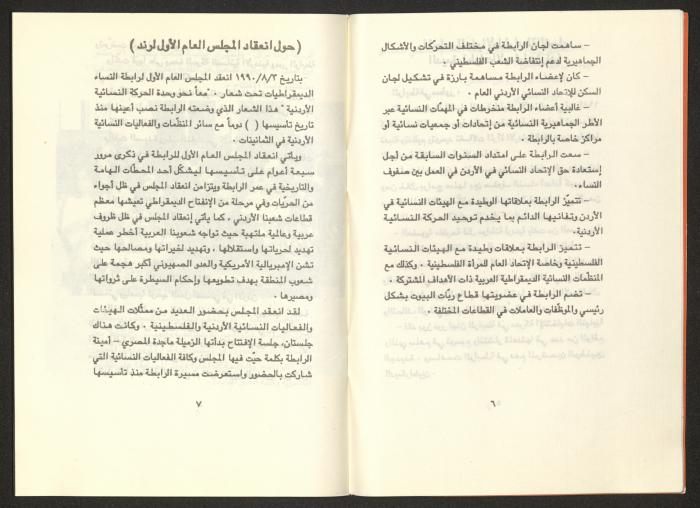 – ساهمت لجان الرابطة في مختلف التحركات والأشكال
الجماهيرية لدعم إنتفاضة الشعب الفلسطيني .
– كان لإعضاء الرابطة مساهمة بارزة في تشكيل لجان
السكن للإتحاد النسائي الأردني العام .
– غالبية أعضاء الرابطة منخرطات في المهمّات النسائية عبر
الأطر الجماهيرية النسائية من إتحادات أو جمعيات نسائية أو
مراكز خاصة بالرابطة .
– سعت الرابطة على امتداد السنوات السابقة من أجل
إستعادة حق الإتحاد النسائي في الأردن في العمل بين صفوف
النساء .
– تتميّز الرابطة بعلاقاتها الوطيدة مع الهيئات النسائية في
الأردن وتفانيها الدائم بما يخدم توحيد الحركة النسائية
الأردنية .
– تتميز الرابطة بعلاقات وطيدة مع الهيئات النسائية
الفلسطينية وخاصة الإتحاد العام للمرأة الفلسطينية . وكذلك مع
المنظمات النسائية الديمقراطية العربية ذات الأهداف المشتركة .
– تضم الرابطة في عضويتها قطاع ربّات البيوت بشكل
رئيسي والموظفات والعاملات في القطاعات المختلفة .
٦
( حول انعقاد المجلس العام الأول لرند )
بتاريخ ١٩٩٠/٨/٣ انعقد المجلس العام الأول لرابطة النساء
الديمقراطيات تحت شعار . "معاً نحو وحدة الحركة النسائية
الأردنية" هذا الشعار الذي وضعته الرابطة نصب أعينها منذ
تاريخ تأسيسها ( ) دوماً مع سائر المنظمات والفعاليات النسائية
الأردنية في الثمانينات .
ويأتي انعقاد المجلس العام الأول للرابطة في ذكرى مرور
سبعة أعوام على تأسيسها ليشكل أحد المحطات الهامة
والتاريخية في عمر الرابطة ويتزامن انعقاد المجلس في ظل أجواء
من الحريّات وفي مرحلة من الإنفتاح الديمقراطي تعيشها معظم
قطاعات شعبنا الأردني . كما يأتي إنعقاد المجلس في ظل ظروف
عربية وعالمية ملتهبة حيث تواجه شعوبنا العربية أخطر عملية
تهديد لحرياتها واستقلالها . وتهديد لخيراتها ومصالحها حيث
تشن الإمبريالية الأمريكية والعدو الصهيوني أكبر هجمة على
شعوب المنطقة بهدف تطويعها وإحكام السيطرة على ثرواتها
ومصيرها .
لقد انعقد المجلس بحضور العديد من ممثلات الهيئات
والفعاليات النسائية الأردنية والفلسطينية . وكانت هناك
جلستان، جلسة الإفتتاح بدأتها الزميلة ماجدة المصري – أمينة
الرابطة بكلمة حيّت فيها المجلس وكافة الفعاليات النسائية التي
شاركت بالحضور واستعرضت مسيرة الرابطة منذ تأسيسها
٧